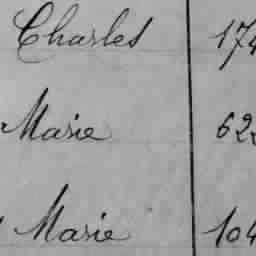 Charles 174
Marie 622
Marie 104